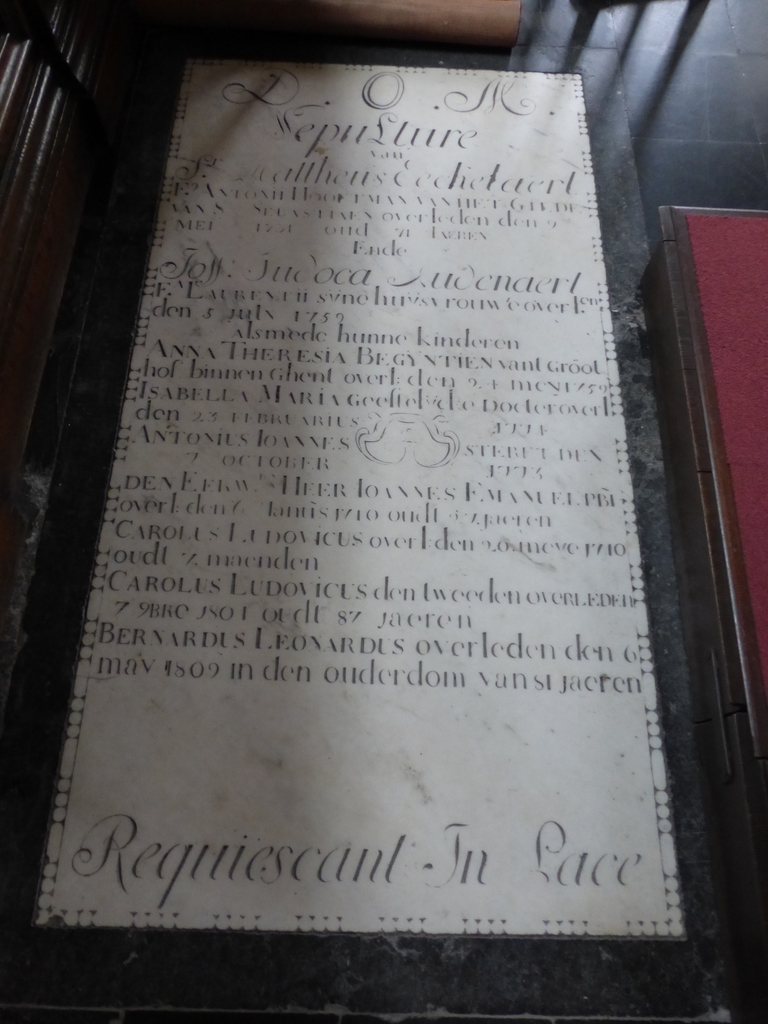 D. O. M.
Sepulture
van
Sr. Mattheus Eeckelaert
Fs. ANTONII HOOFTMAN VAN HET GULDE
VAN S. SEBASTIAEN overleden den 9
MEI oud 71 IAEREN
Ende
Joffe. Judoca Audenaert
Fa. LAURENTII syne huysvrouwe overlen.
den 5 July 1759
alsmede hunne kinderen
ANNA THERESIA BEGYNTIEN vant Groot
hof binnen Ghent overl: den 24 mey 1759
ISABELLA MARIA Geestelycke Docter overl:
den 23 FEBRUARIUS 1774
ANTONIUS IOANNES STERFT DEN
7 OCTOBER 1773
DEN EERW. HEER IOANNES EMANUEL PBR
overl: den 6 oudt 37 jaeren
CAROLUS LUDOVICUS overl: den 26 meye 1710
oudt 7 maenden
CAROLUS LUDOVICUS den tweeden OVERLEDEN
7 9BRE 1801 OUDT 87 jaeren
BERNARDUS LEONARDUS overleden den 6
may 1809 in den ouderdom van 81 jaeren
Requiescant In Pace